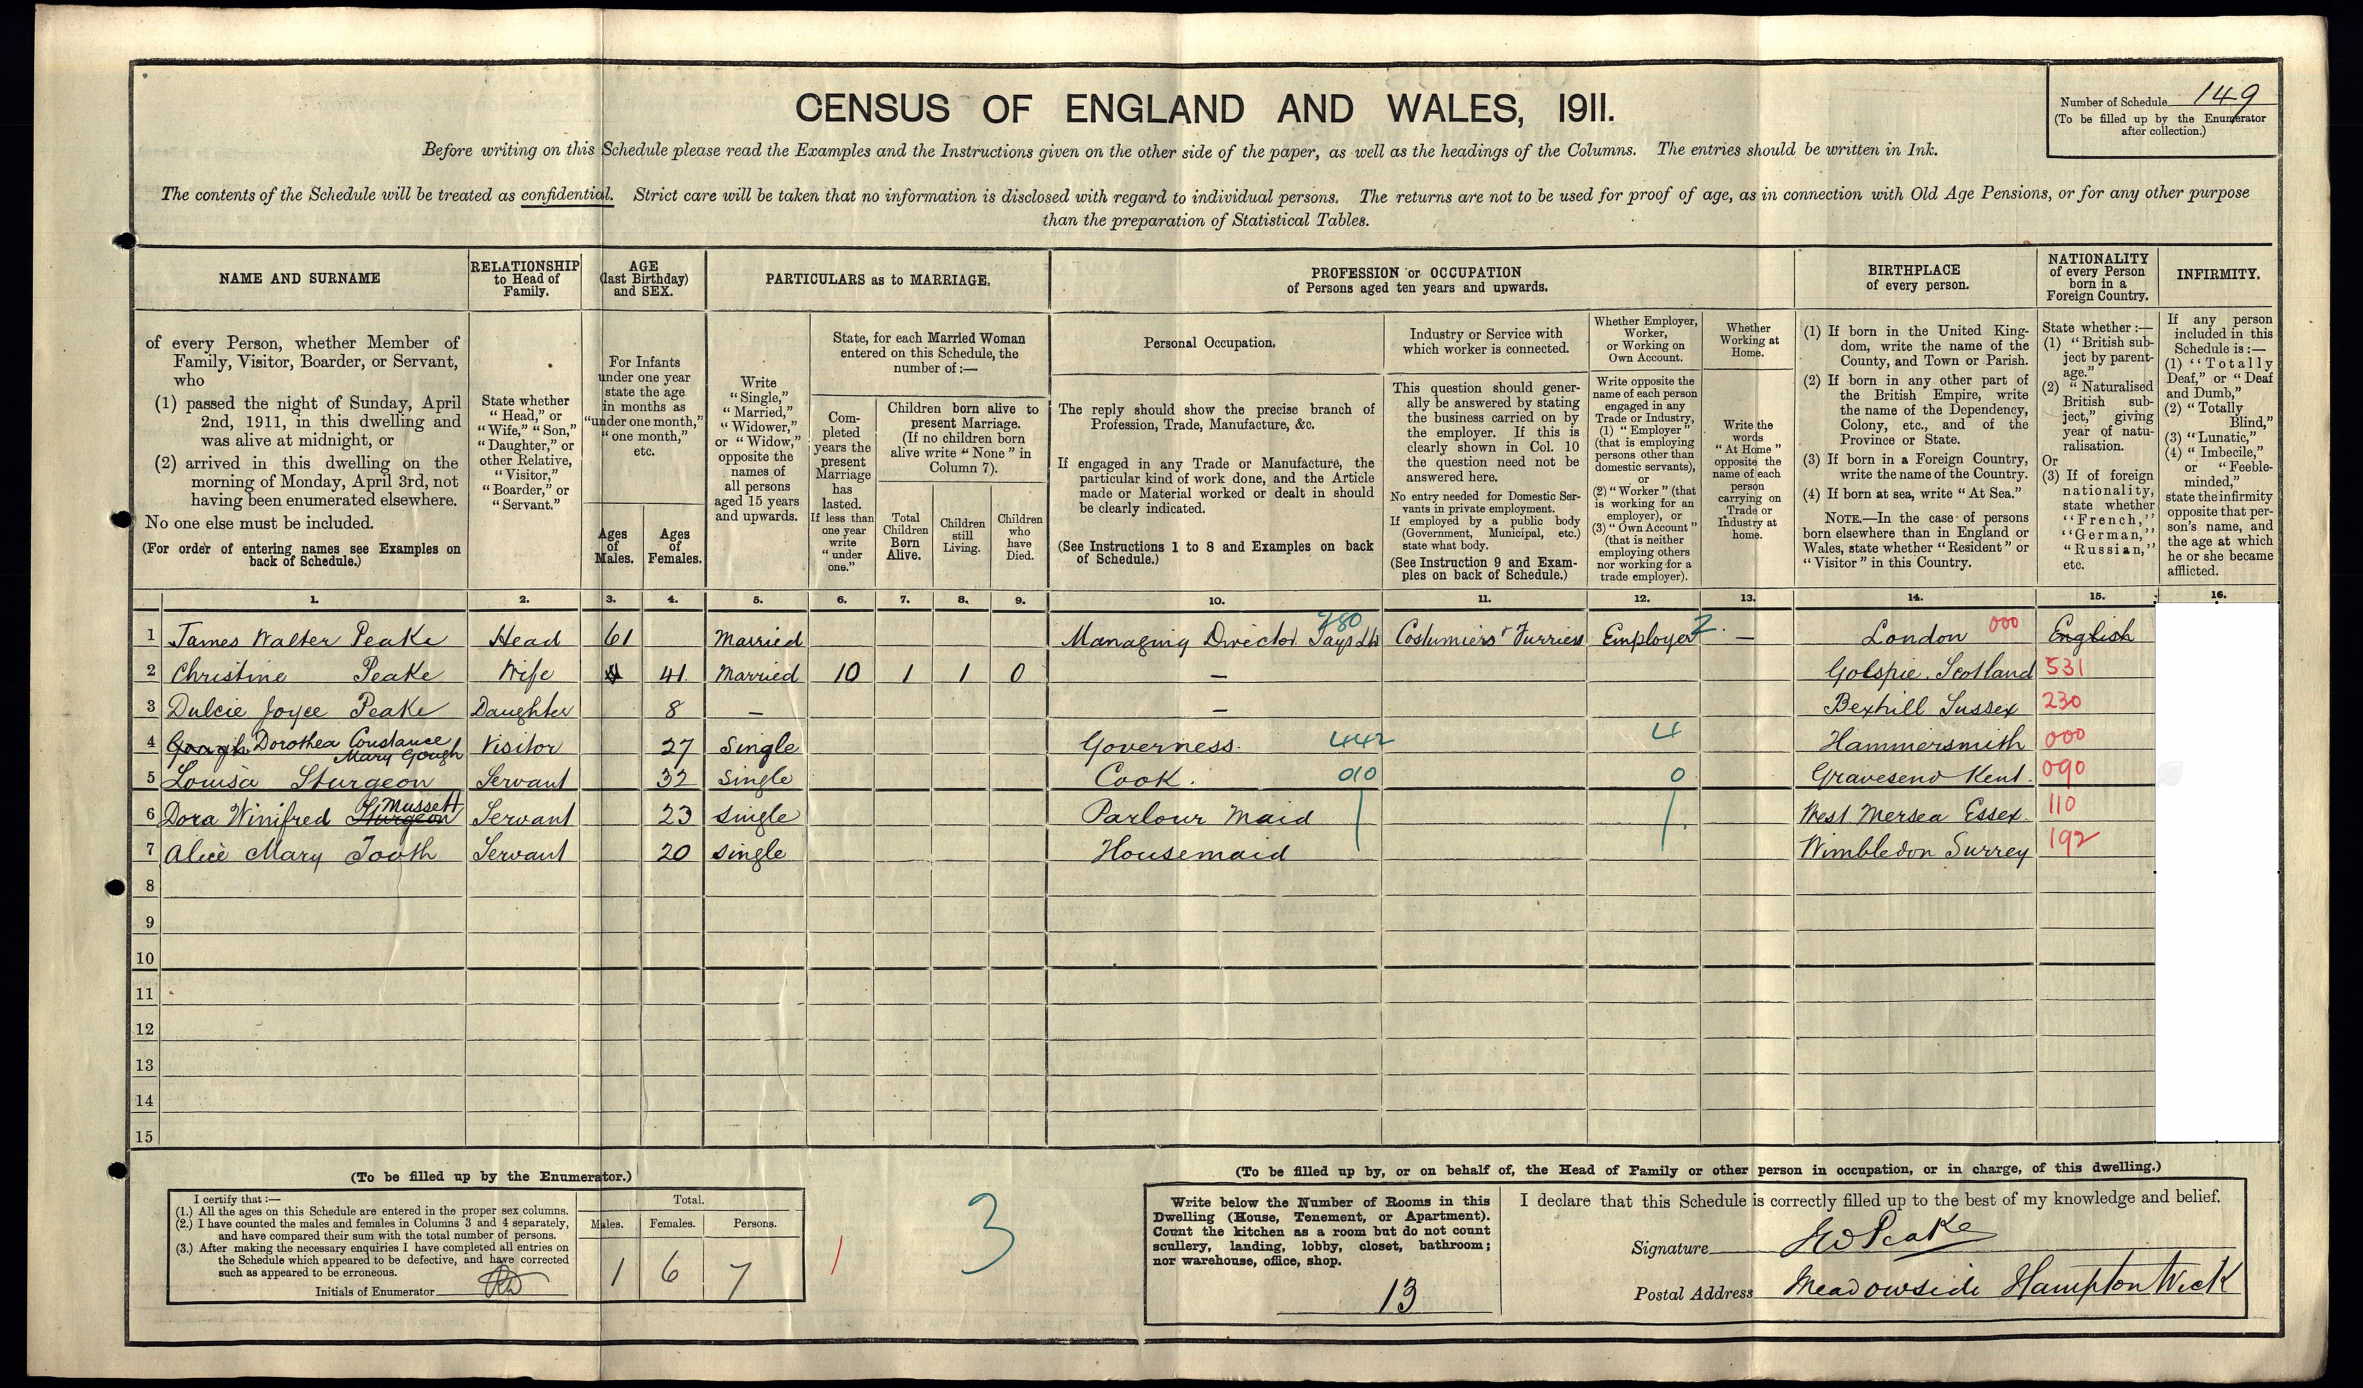 CENSUS OF ENGLAND AND WALES, 1911.
Number of Schedule 149
(To be filled up by the Enumerator
after collection.)
Before writing on this Schedule please read the Examples and the Instructions given on the other side of the paper, as well as the headings of the Columns. The entries should be written in Ink.
The contents of the Schedule will be treated as confidential. Strict care will be taken that no information is disclosed with regard to individual persons. The returns are not to be used for proof of age, as in connection with Old Age Pensions, or for any other purpose
than the preparation of Statistical Tables.
NAME AND SURNAME
of every Person, whether Member of
Family, Visitor, Boarder, or Servant,
who
(1) passed the night of Sunday, April
2nd, 1911, in this dwelling and
was alive at midnight, or
(2) arrived in this dwelling on the
morning of Monday, April 3rd, not
having been enumerated elsewhere.
No one else must be included.
(For order of entering names see Examples on
back of Schedule.)
RELATIONSHIP
to Head of
Family.
State whether
"Head," or
"Wife," "Son,"
"Daughter," or
other Relative,
"Visitor,"
"Boarder," or
"Servant."
AGE
(last Birthday)
and SEX.
For Infants
under one year
state the age
in months as
"under one month,"
"one month,"
etc.
Ages
of
Males.
Ages
of
Females.
PARTICULARS as to MARRIAGE.
Write
"Single,"
"Married,"
"Widower,"
or "Widow,"
opposite the
names of
all persons
aged 15 years
and upwards.
State, for each Married Woman
entered on this Schedule, the
number of :—
Com-
pleted
years the
present
Marriage
has
lasted.
If less than
one year
write
"under
one."
Children born alive to
present Marriage.
(If no children born
alive write "None" in
Column 7).
Total
Children
Born
Alive.
Children
still
Living.
Children
who
have
Died.
PROFESSION or OCCUPATION
of Persons aged ten years and upwards.
Personal Occupation.
The reply should show the precise branch of
Profession, Trade, Manufacture, &c.
If engaged in any Trade or Manufacture, the
particular kind of work done, and the Article
made or Material worked or dealt in should
be clearly indicated.
(See Instructions 1 to 8 and Examples on back
of Schedule.)
Industry or Service with
which worker is connected.
This question should gener-
ally be answered by stating
the business carried on by
the employer. If this is
clearly shown in Col. 10
the question need not be
answered here.
No entry needed for Domestic Ser-
vants in private employment.
If employed by a public body
(Government, Municipal, etc.)
state what body.
(See Instruction 9 and Exam-
ples on back of Schedule.)
Whether Employer,
Worker,
or Working on
Own Account.
Write opposite the
name of each person
engaged in any
Trade or Industry,
(1) "Employer"
(that is employing
persons other than
domestic servants),
or
(2) "Worker" (that
is working for an
employer), or
(3) "Own Account"
(that is neither
employing others
nor working for a
trade employer).
Whether
Working at
Home.
Write the
words
"At Home"
opposite the
name of each
person
carrying on
Trade or
Industry at
home.
BIRTHPLACE
of every person.
(1) If born in the United King-
dom, write the name of the
County, and Town or Parish.
(2) If born in any other part of
the British Empire, write
the name of the Dependency,
Colony, etc., and of the
Province or State.
(3) If born in a Foreign Country,
write the name of the Country.
(4) If born at sea, write "At Sea."
NOTE.—In the case of persons
born elsewhere than in England or
Wales, state whether "Resident" or
"Visitor" in this Country.
NATIONALITY
of every Person
born in a
Foreign Country.
State whether :—
(1) "British sub-
ject by parent-
age."
(2) "Naturalised
British sub-
ject," giving
year of natu-
ralisation.
Or
(3) If of foreign
nationality,
state whether
"French,"
"German,"
"Russian,"
etc.
INFIRMITY.
If any person
included in this
Schedule is :—
(1) "Totally
Deaf," or "Deaf
and Dumb,"
(2) "Totally
Blind,"
(3) "Lunatic,"
(4) "Imbecile,"
or "Feeble-
minded,"
state the infirmity
opposite that per-
son's name, and
the age at which
he or she became
afflicted.
1. 2. 3. 4. 5. 6. 7. 8. 9. 10. 11. 12. 13. 14. 15. 16.
1 James Walter Peake Head 61 Married Managing Director Jays Ltd 780 Costumiers & Furriers Employer 2 — London 000 English
2 Christine Peake Wife 41 Married 10 1 1 0 — Golspie. Scotland 531
3 Dulcie Joyce Peake Daughter 8 — — Bexhill Sussex 230
4 Gough Dorothea Constance Mary Gough Visitor 27 Single Governess. 442 4 Hammersmith 000
5 Louisa Sturgeon Servant 32 Single Cook. 010 0 Gravesend Kent. 090
6 Dora Winifred Sturgeon Mussett Servant 23 Single Parlour Maid West Mersea Essex. 110
7 Alice Mary Tooth Servant 20 Single Housemaid Wimbledon Surrey 192
8
9
10
11
12
13
14
15
(To be filled up by the Enumerator.)
I certify that :—
(1.) All the ages on this Schedule are entered in the proper sex columns.
(2.) I have counted the males and females in Columns 3 and 4 separately,
and have compared their sum with the total number of persons.
(3.) After making the necessary enquiries I have completed all entries on
the Schedule which appeared to be defective, and have corrected
such as appeared to be erroneous.
Initials of Enumerator
Total.
Males. Females. Persons.
1 6 7
1 3
(To be filled up by, or on behalf of, the Head of Family or other person in occupation, or in charge, of this dwelling.)
Write below the Number of Rooms in this
Dwelling (House, Tenement, or Apartment).
Count the kitchen as a room but do not count
scullery, landing, lobby, closet, bathroom;
nor warehouse, office, shop.
13
I declare that this Schedule is correctly filled up to the best of my knowledge and belief.
Signature JW Peake
Postal Address Meadowside Hampton Wick